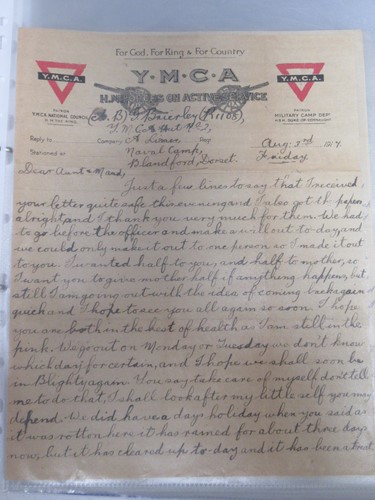 For God, For King & For Country
Y.M.C.A
Y.M.C.A.
Y.M.C.A.
H.M. ON ACTIVE SERVICE
PATRON
Y.M.C.A. NATIONAL COUNCIL
H.M. THE KING.
PATRON
MILITARY CAMP DEPT
H.R.H. DUKE OF CONNAUGHT
A. B. Brierley (R1108)
Y.M.C.A. Hut
Reply to Company A. Bay Aug: 3rd 1917
Stationed at Naval Camp, Friday
Blandford, Dorset.
Dear Aunt & Maud,
Just a few lines to say that I received
your letter quite safe this evening and I also got the papers
alright and I thank you very much for them. We had
to go before the officer and make a will out to-day and
we could only make it out to one person so I made it out
to you. I wanted half to you and half to mother, so
I want you to give mother half if anything happens, but
still I am going out with the idea of coming back again
quick and I hope to see you all again so soon. I hope
you are both in the best of health as I am still in the
pink. We go out on Monday or Tuesday we don't know
which day for certain, and I hope we shall soon be
in Blighty again. You say take care of myself don't tell
me to do that, I shall look after my little self you may
depend. We did have a days holiday when you said as
it was rotten here it has rained for about three days
now, but it has cleared up to-day and it has been a treat